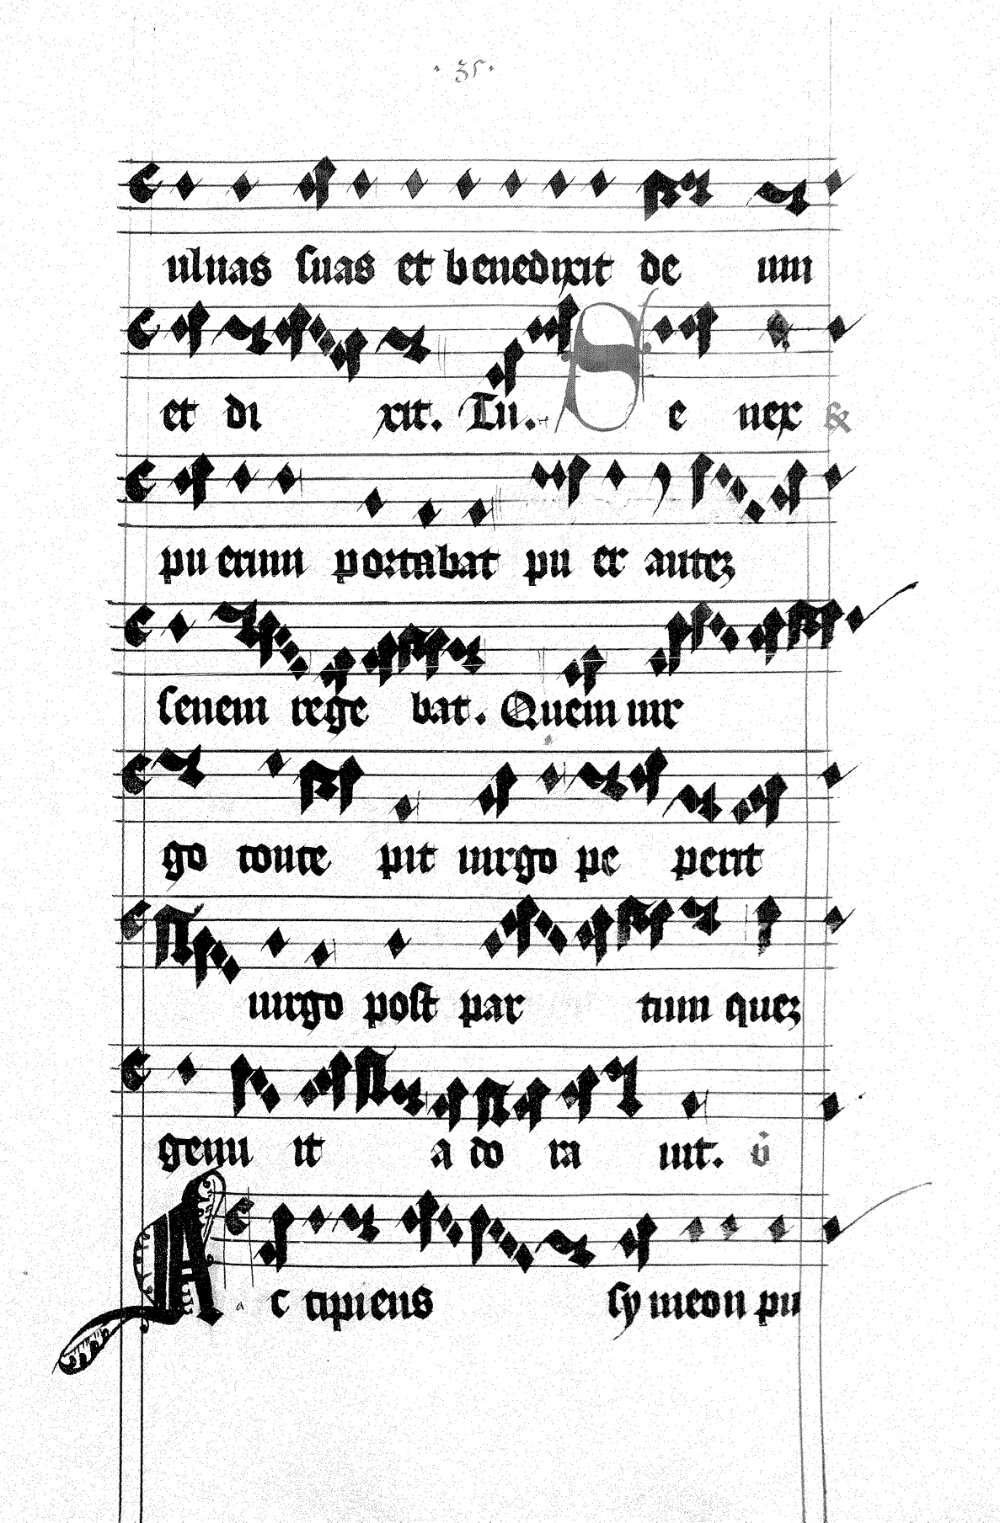 · 35 ·
ulnas suas et benedixit de um
et di xit. Tu. S e nex &
pu erum portabat pu er autez
senem rege bat. Quem uir
go conce pit uirgo pe perit
uirgo post par tum quez
genu it a do ra uit. v̄
A c cipiens symeon pu